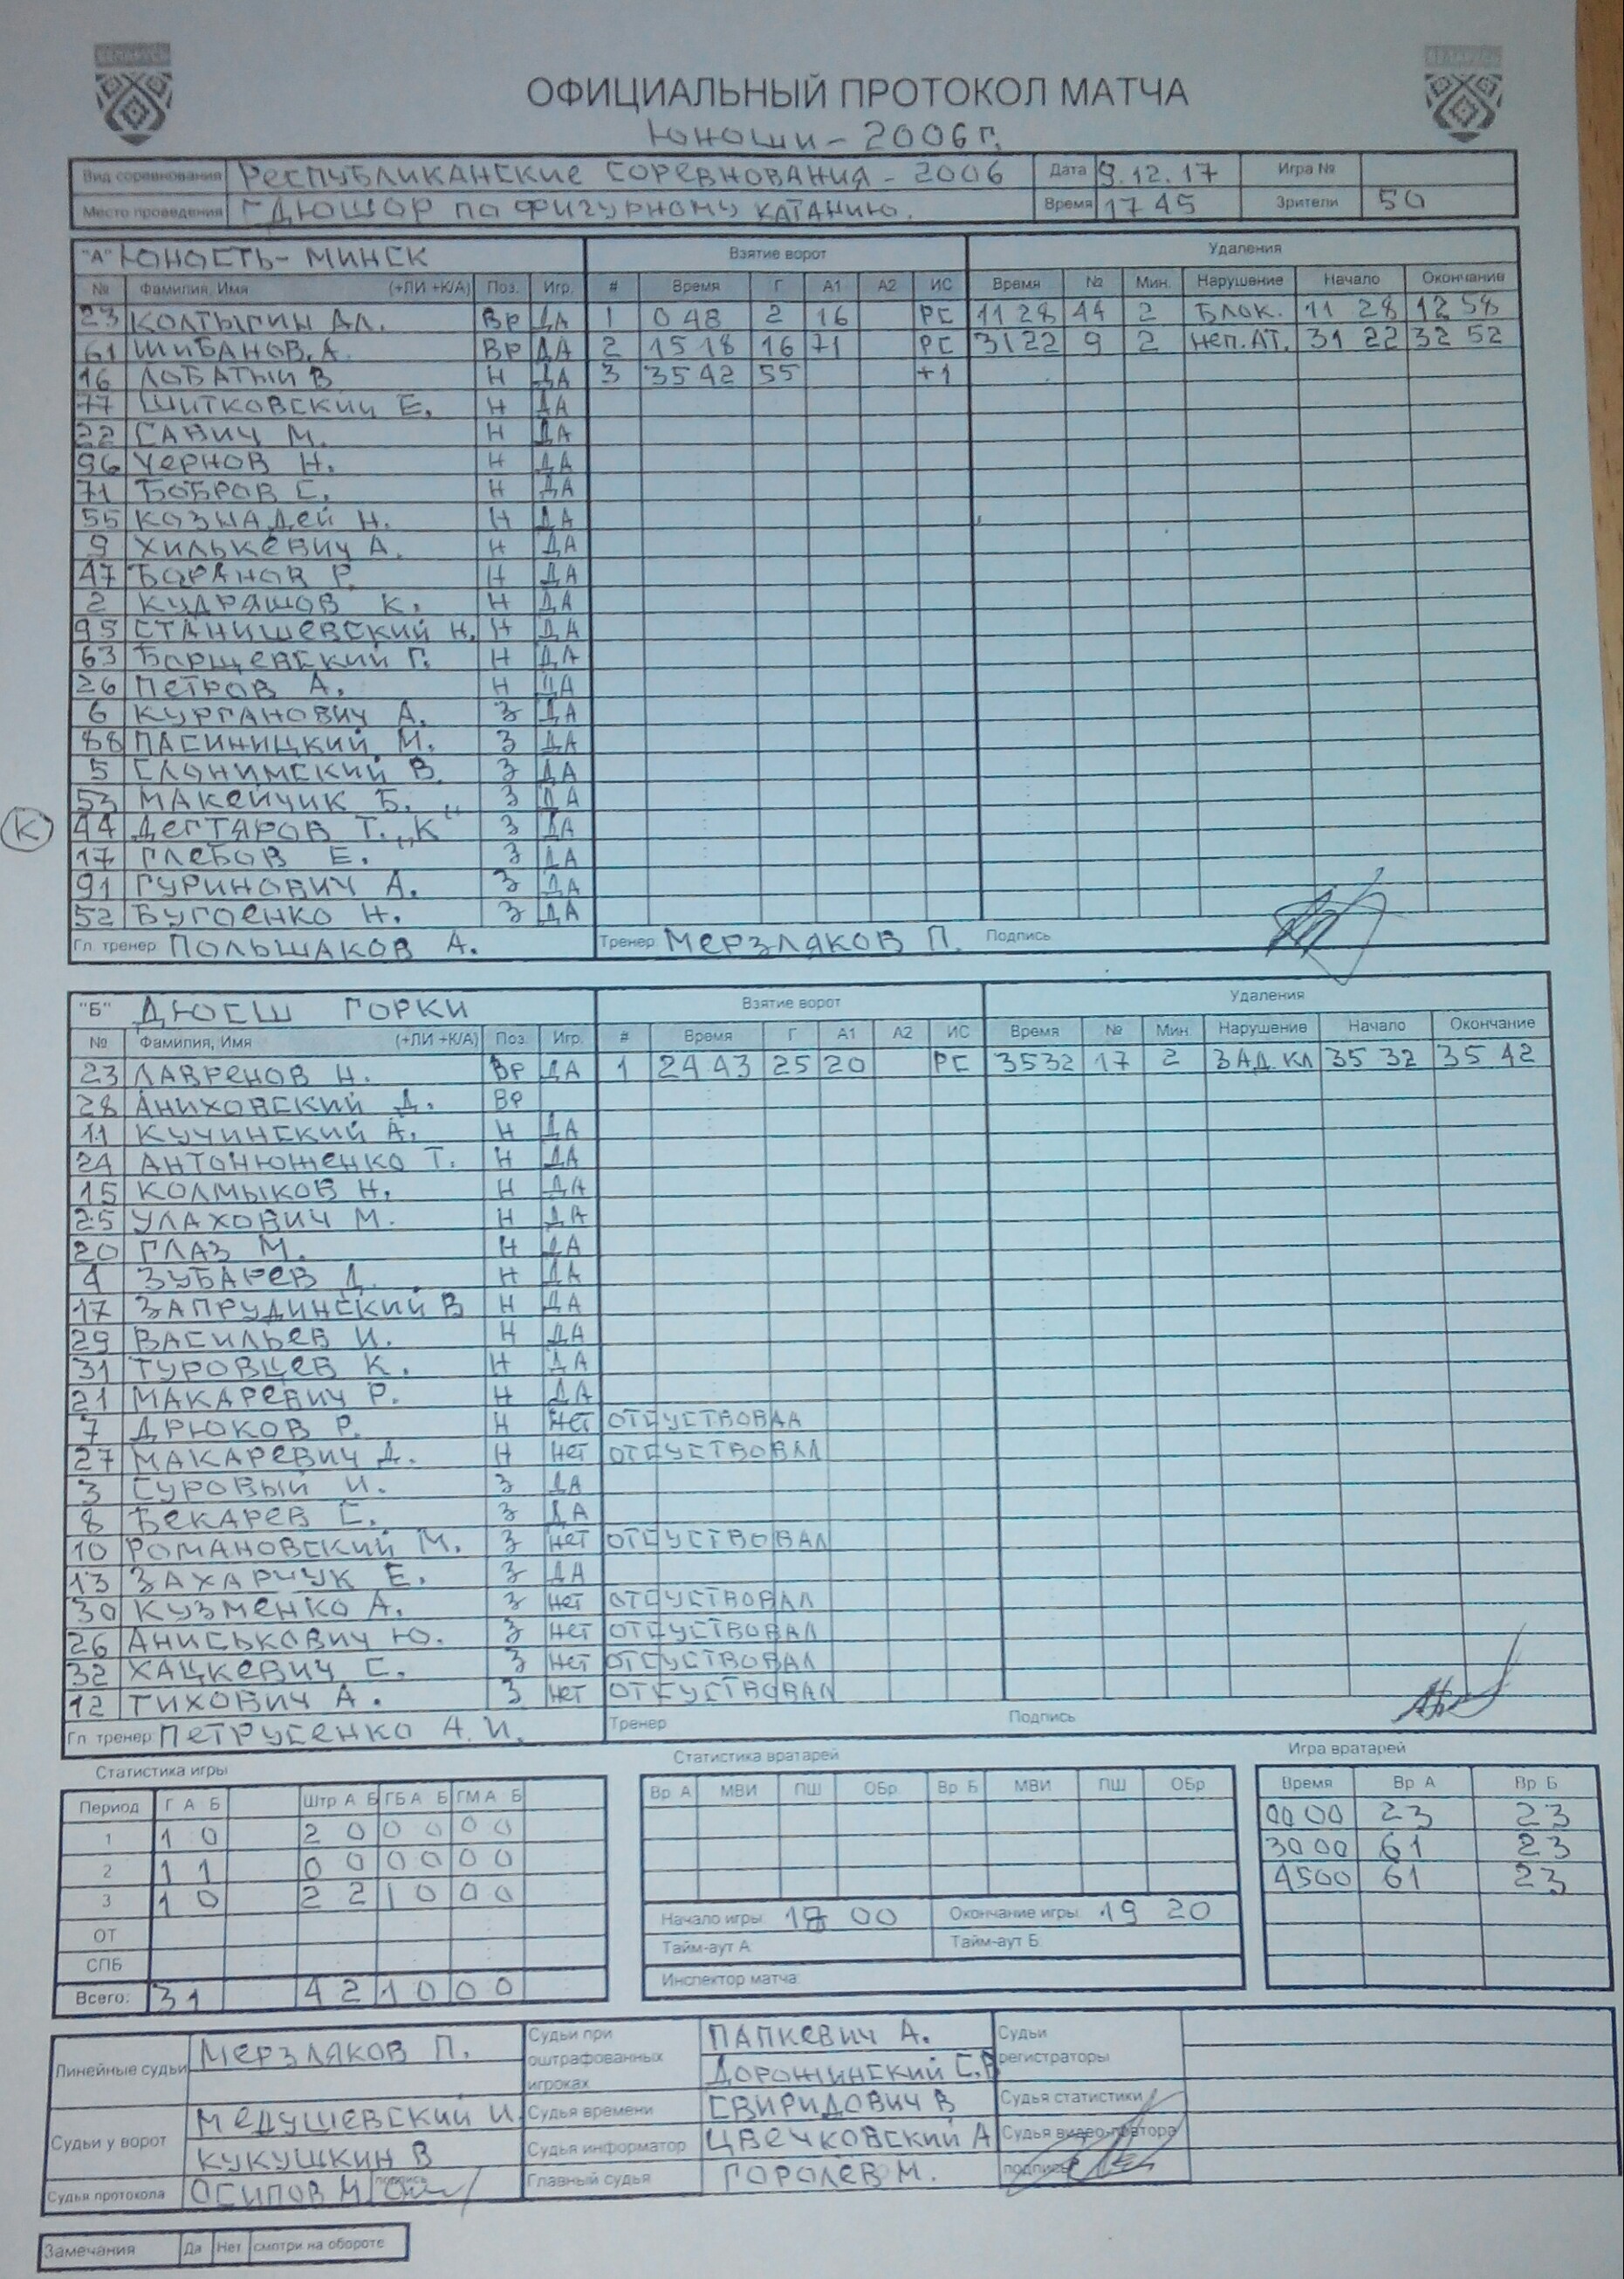 БЕЛАРУСЬ БЕЛАРУСЬ
ОФИЦИАЛЬНЫЙ ПРОТОКОЛ МАТЧА
Юноши - 2006 г.
Вид соревнования РЕСПУБЛИКАНСКИЕ СОРЕВНОВАНИЯ - 2006 Дата 9.12.17 Игра №
Место проведения ГДЮШОР ПО ФИГУРНОМУ КАТАНИЮ. Время 17 45 Зрители 50
"А" ЮНОСТЬ - МИНСК Взятие ворот Удаления
№ Фамилия, Имя (+ЛИ +К/А) Поз. Игр. # Время Г А1 А2 ИС Время № Мин. Нарушение Начало Окончание
23 КОЛТЫГИН АЛ. ВР ДА 1 0 48 2 16 РС 11 28 44 2 БЛОК. 11 28 12 58
61 ШИБАНОВ.А. ВР ДА 2 15 18 16 71 РС 31 22 9 2 НЕП.АТ. 31 22 32 52
16 ЛОБАТЫЙ В Н ДА 3 35 42 55 +1
77 ШИТКОВСКИЙ Е. Н ДА
22 САВИЧ М. Н ДА
96 ЧЕРНОВ Н. Н ДА
71 БОБРОВ С. Н ДА
55 КОЗНАДЕЙ Н. Н ДА
9 ХИЛЬКЕВИЧ А. Н ДА
47 БАРАНОВ Р. Н ДА
2 КУДРЯШОВ К. Н ДА
95 СТАНИШЕВСКИЙ Н. Н ДА
63 БОРЩЕВСКИЙ Г. Н ДА
26 ПЕТРОВ А. Н ДА
6 КУРГАНОВИЧ А. З ДА
88 ПАСИНИЦКИЙ М. З ДА
5 СЛОНИМСКИЙ В. З ДА
53 МАКЕЙЧИК Б. З ДА
К 44 ДЕГТЯРОВ Т. „К" З ДА
17 ГЛЕБОВ Е. З ДА
91 ГУРИНОВИЧ А. З ДА
52 БУГОЕНКО Н. З ДА
Гл. тренер ПОЛЬШАКОВ А. Тренер МЕРЗЛЯКОВ П. Подпись
"Б" ДЮСШ ГОРКИ Взятие ворот Удаления
№ Фамилия, Имя (+ЛИ +К/А) Поз. Игр. # Время Г А1 А2 ИС Время № Мин Нарушение Начало Окончание
23 ЛАВРЕНОВ Н. ВР ДА 1 24 43 25 20 РС 35 32 17 2 ЗАД.КЛ 35 32 35 42
28 АНИХОВСКИЙ Д. ВР
11 КУЧИНСКИЙ А. Н ДА
24 АНТОНЮЖЕНКО Т. Н ДА
15 КОЛМЫКОВ Н. Н ДА
25 УЛАХОВИЧ М. Н ДА
20 ГЛАЗ М. Н ДА
4 ЗУБАРЕВ Д. Н ДА
17 ЗАПРУДИНСКИЙ В Н ДА
29 ВАСИЛЬЕВ И. Н ДА
31 ТУРОВЦЕВ К. Н ДА
21 МАКАРЕВИЧ Р. Н ДА
7 ДРЮКОВ Р. Н НЕТ ОТСУСТВОВАЛ
27 МАКАРЕВИЧ Д. Н НЕТ ОТСУСТВОВАЛ
3 СУРОВЫЙ И. З ДА
8 БЕКАРЕВ С. З ДА
10 РОМАНОВСКИЙ М. З НЕТ ОТСУСТВОВАЛ
13 ЗАХАРЧУК Е. З ДА
30 КУЗМЕНКО А. З НЕТ ОТСУСТВОВАЛ
26 АНИСЬКОВИЧ Ю. З НЕТ ОТСУСТВОВАЛ
32 ХАЦКЕВИЧ С. З НЕТ ОТСУСТВОВАЛ
12 ТИХОВИЧ А. З НЕТ ОТСУСТВОВАЛ
Гл. тренер ПЕТРУСЕНКО А.И. Тренер Подпись
Статистика игры Статистика вратарей Игра вратарей
Период Г А Б Штр А Б ГБ А Б ГМ А Б Вр А МВИ ПШ ОБр Вр Б МВИ ПШ ОБр Время Вр А Вр Б
1 1 0 2 0 0 0 0 0 00 00 23 23
2 1 1 0 0 0 0 0 0 30 00 61 23
3 1 0 2 2 1 0 0 0 45 00 61 23
ОТ Начало игры 18 00 Окончание игры 19 20
СПБ Тайм-аут А Тайм-аут Б
Всего: 3 1 4 2 1 0 0 0 Инспектор матча:
Линейные судьи МЕРЗЛЯКОВ П. Судьи при оштрафованных игроках ПАПКЕВИЧ А. Судьи регистраторы
ДОРОЖИНСКИЙ С.В
Судьи у ворот МЕДУШЕВСКИЙ И. Судья времени СВИРИДОВИЧ В Судья статистики
КУКУШКИН В Судья информатор ЦВЕЧКОВСКИЙ А Судья видео-повтора
Судья протокола ОСИПОВ М подпись Главный судья ГОРОЛЕВ М. подпись
Замечания Да Нет смотри на обороте